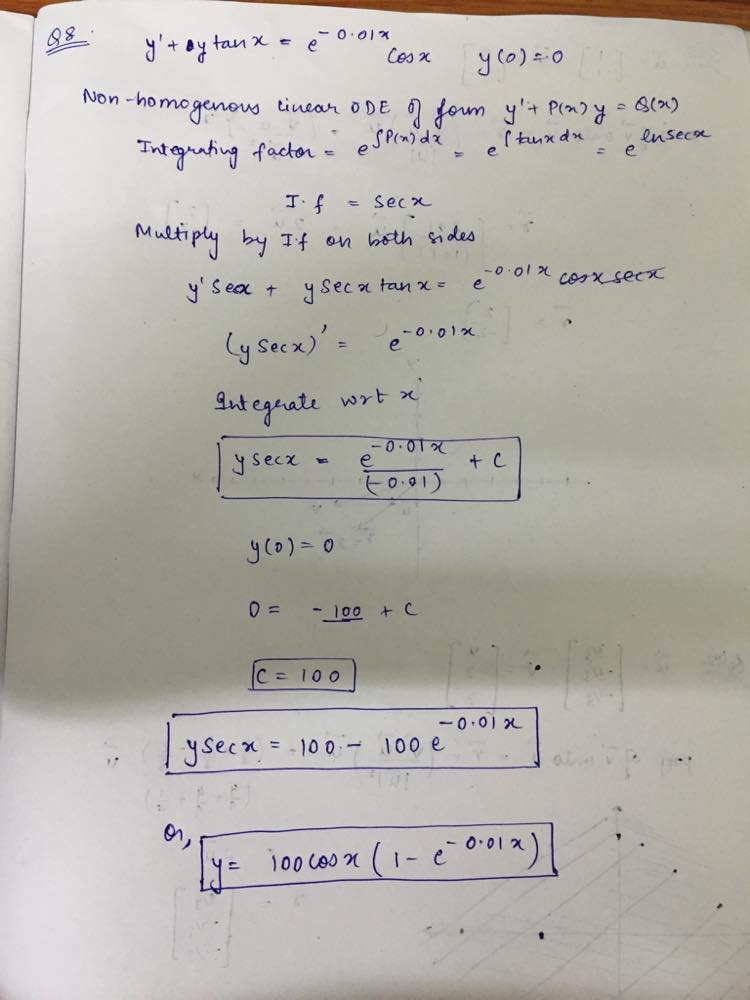 Q8.
y' + y tan x = e^{-0.01x} cos x    y(0) = 0
Non-homogenous linear ODE of form y' + P(x) y = Q(x)
Integrating factor = e^{∫P(x)dx} = e^{∫tan x dx} = e^{ln sec x}
I.f = sec x
Multiply by I.f on both sides
y' sec x + y sec x tan x = e^{-0.01x} cos x sec x
(y sec x)' = e^{-0.01x}
Integerate wrt x
y sec x = e^{-0.01x}/(-0.01) + C
y(0) = 0
0 = -100 + C
C = 100
y sec x = 100 - 100 e^{-0.01x}
Or,
y = 100 cos x (1 - e^{-0.01x})